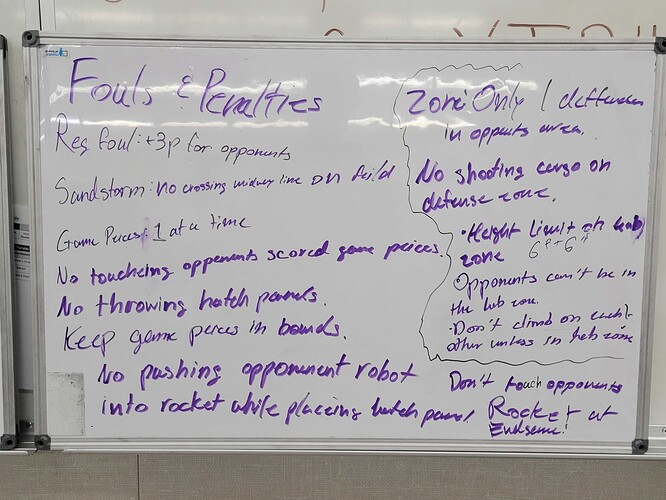 Fouls & Penalties
Reg foul: +3p for opponents
Sandstorm: no crossing midway line on feild
Game Peices: 1 at a time
No toucheing opponents scored game peices.
No throwing hatch panels.
Keep game peices in bounds.
No pushing opponment robot
into rocket while placeing hatch panel
Zone Only 1 deffender
in oppents area.
No shooting cargo on
defense zone.
•Height limit on hab
zone 6"
•Opponents can't be in
the hab zone.
•Don't climb on each
other unless in hab zone
Don't touch opponents
Rocket at
Endgame!